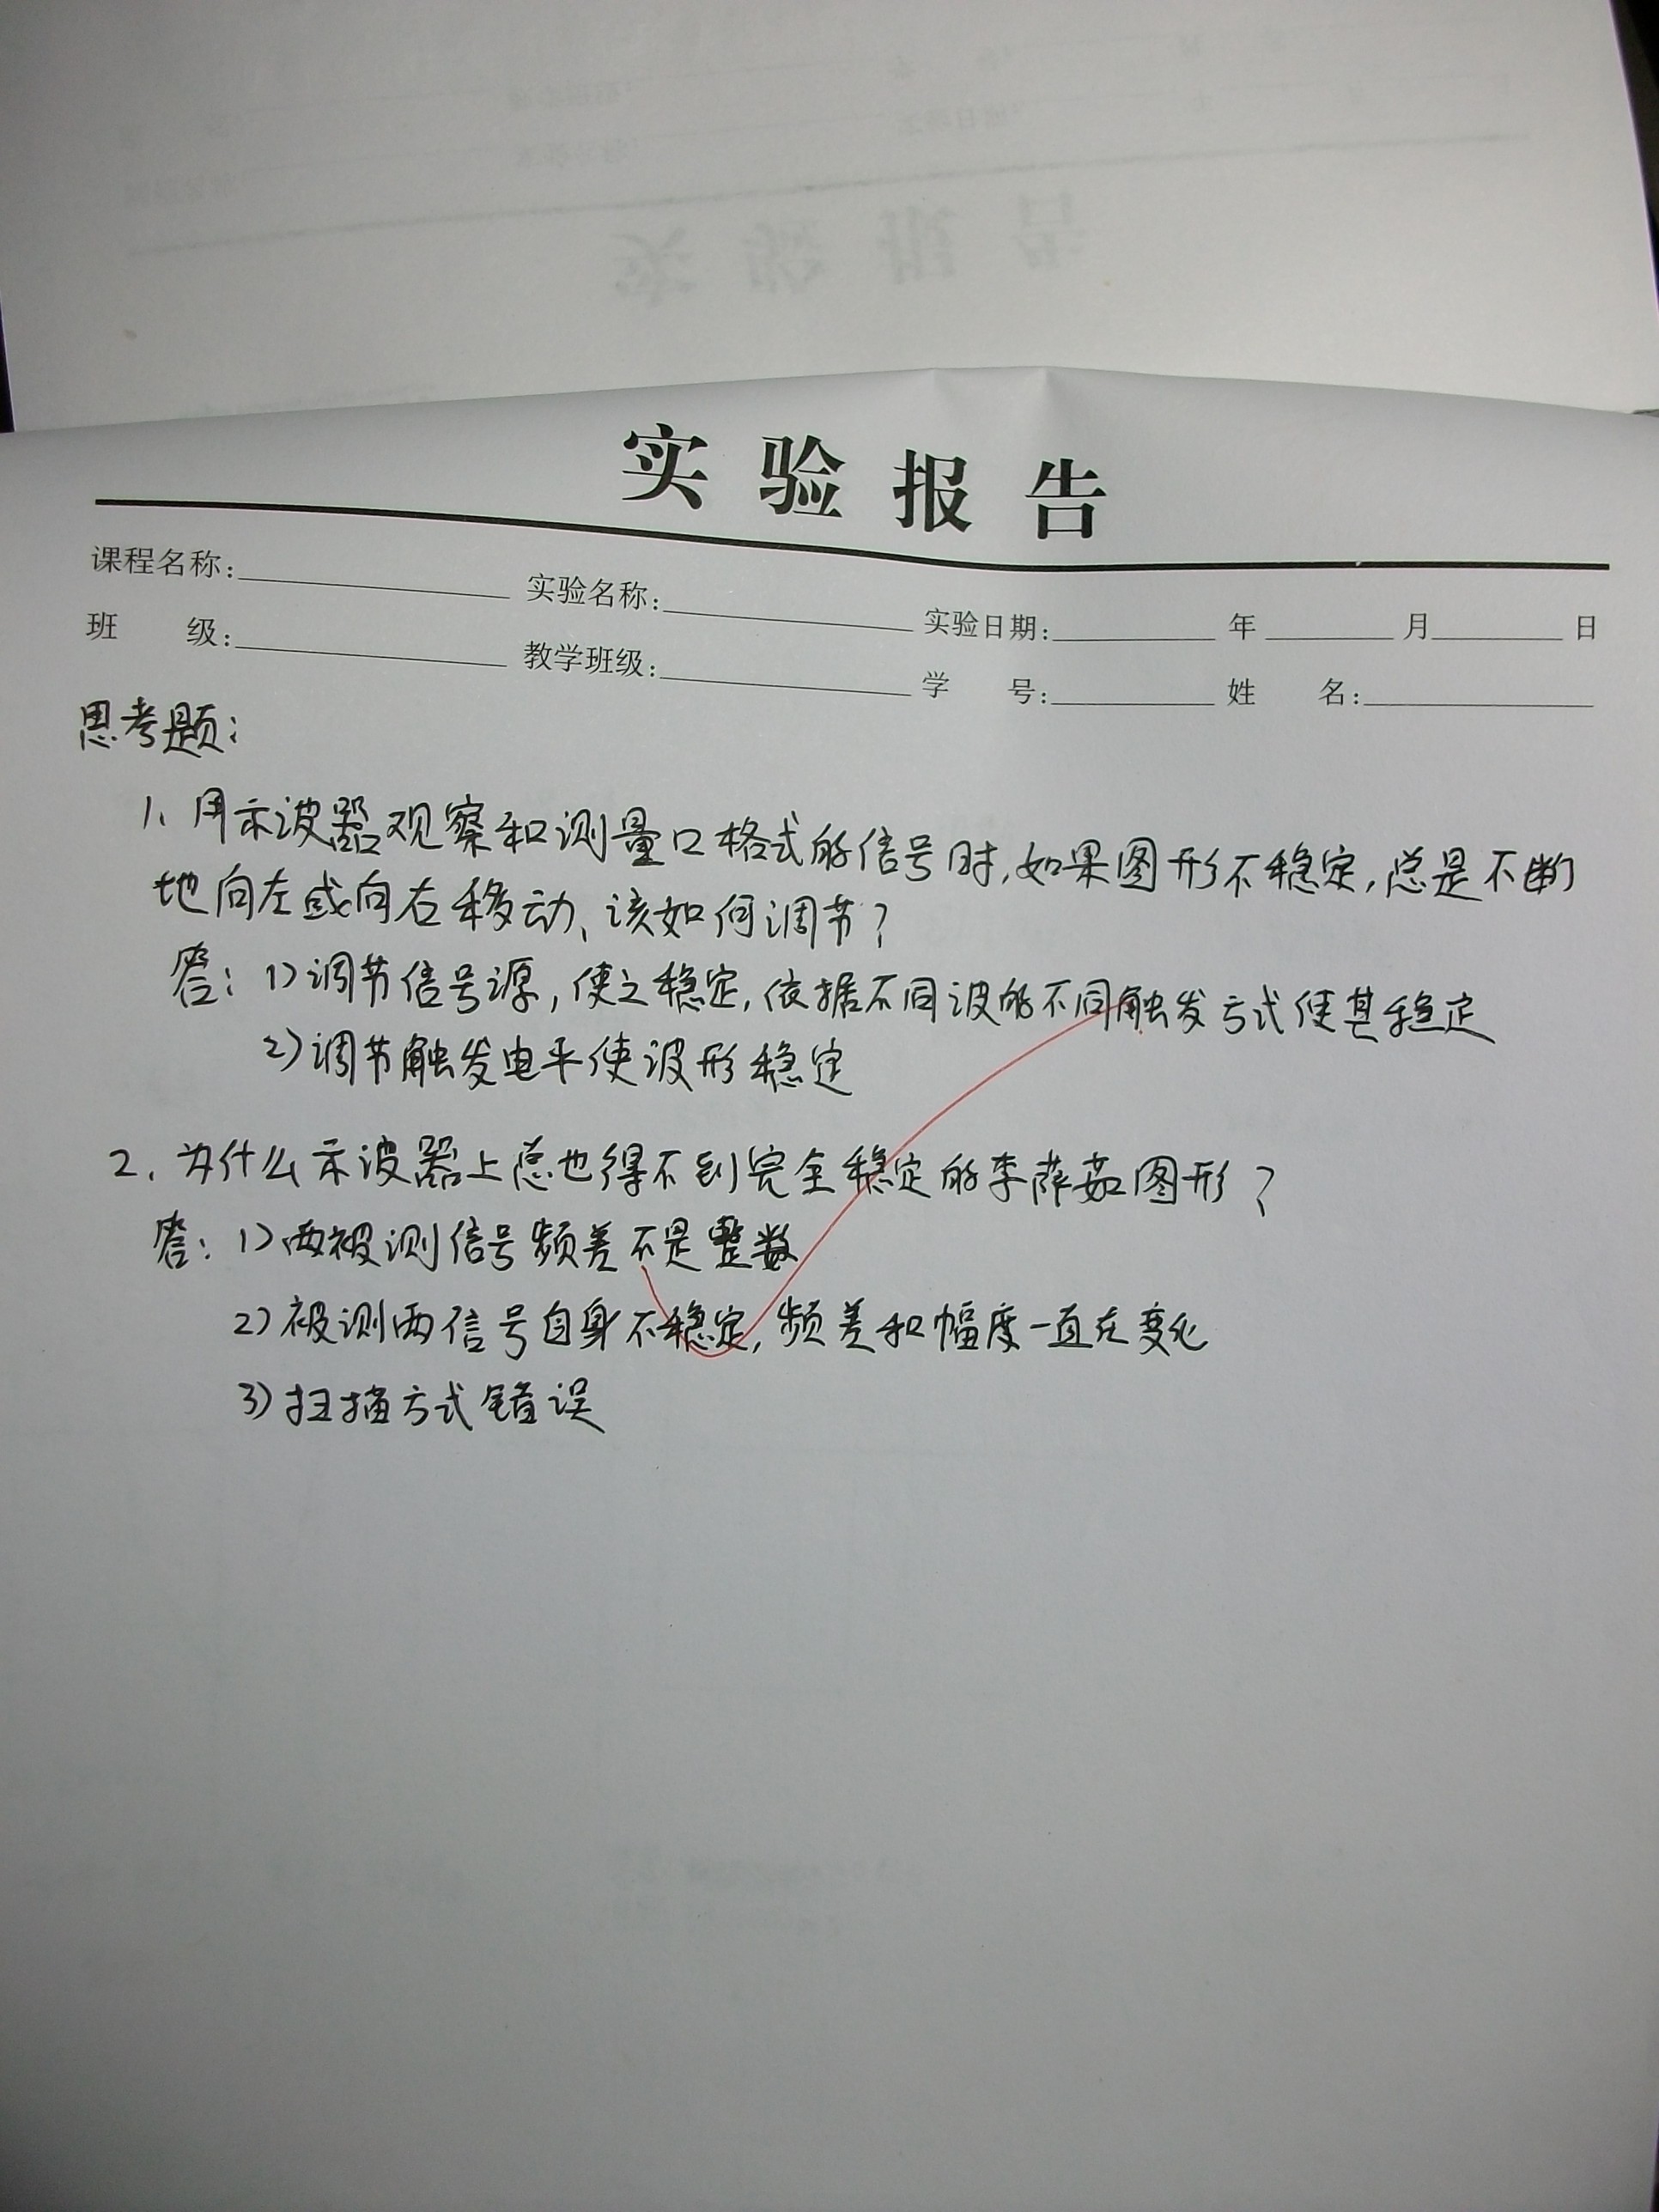 实验报告
课程名称: 实验名称: 实验日期: 年 月 日
班 级: 教学班级: 学 号: 姓 名:
思考题:
1、用示波器观察和测量口格式的信号时,如果图形不稳定,总是不断
地向左或向右移动、该如何调节?
答: 1)调节信号源,使之稳定,依据不同波的不同触发方式使其稳定
2)调节触发电平使波形稳定
2、为什么示波器上总也得不到完全稳定的李萨茹图形?
答: 1)两被测信号频差不是整数
2)被测两信号自身不稳定,频差和幅度一直在变化
3)扫描方式错误